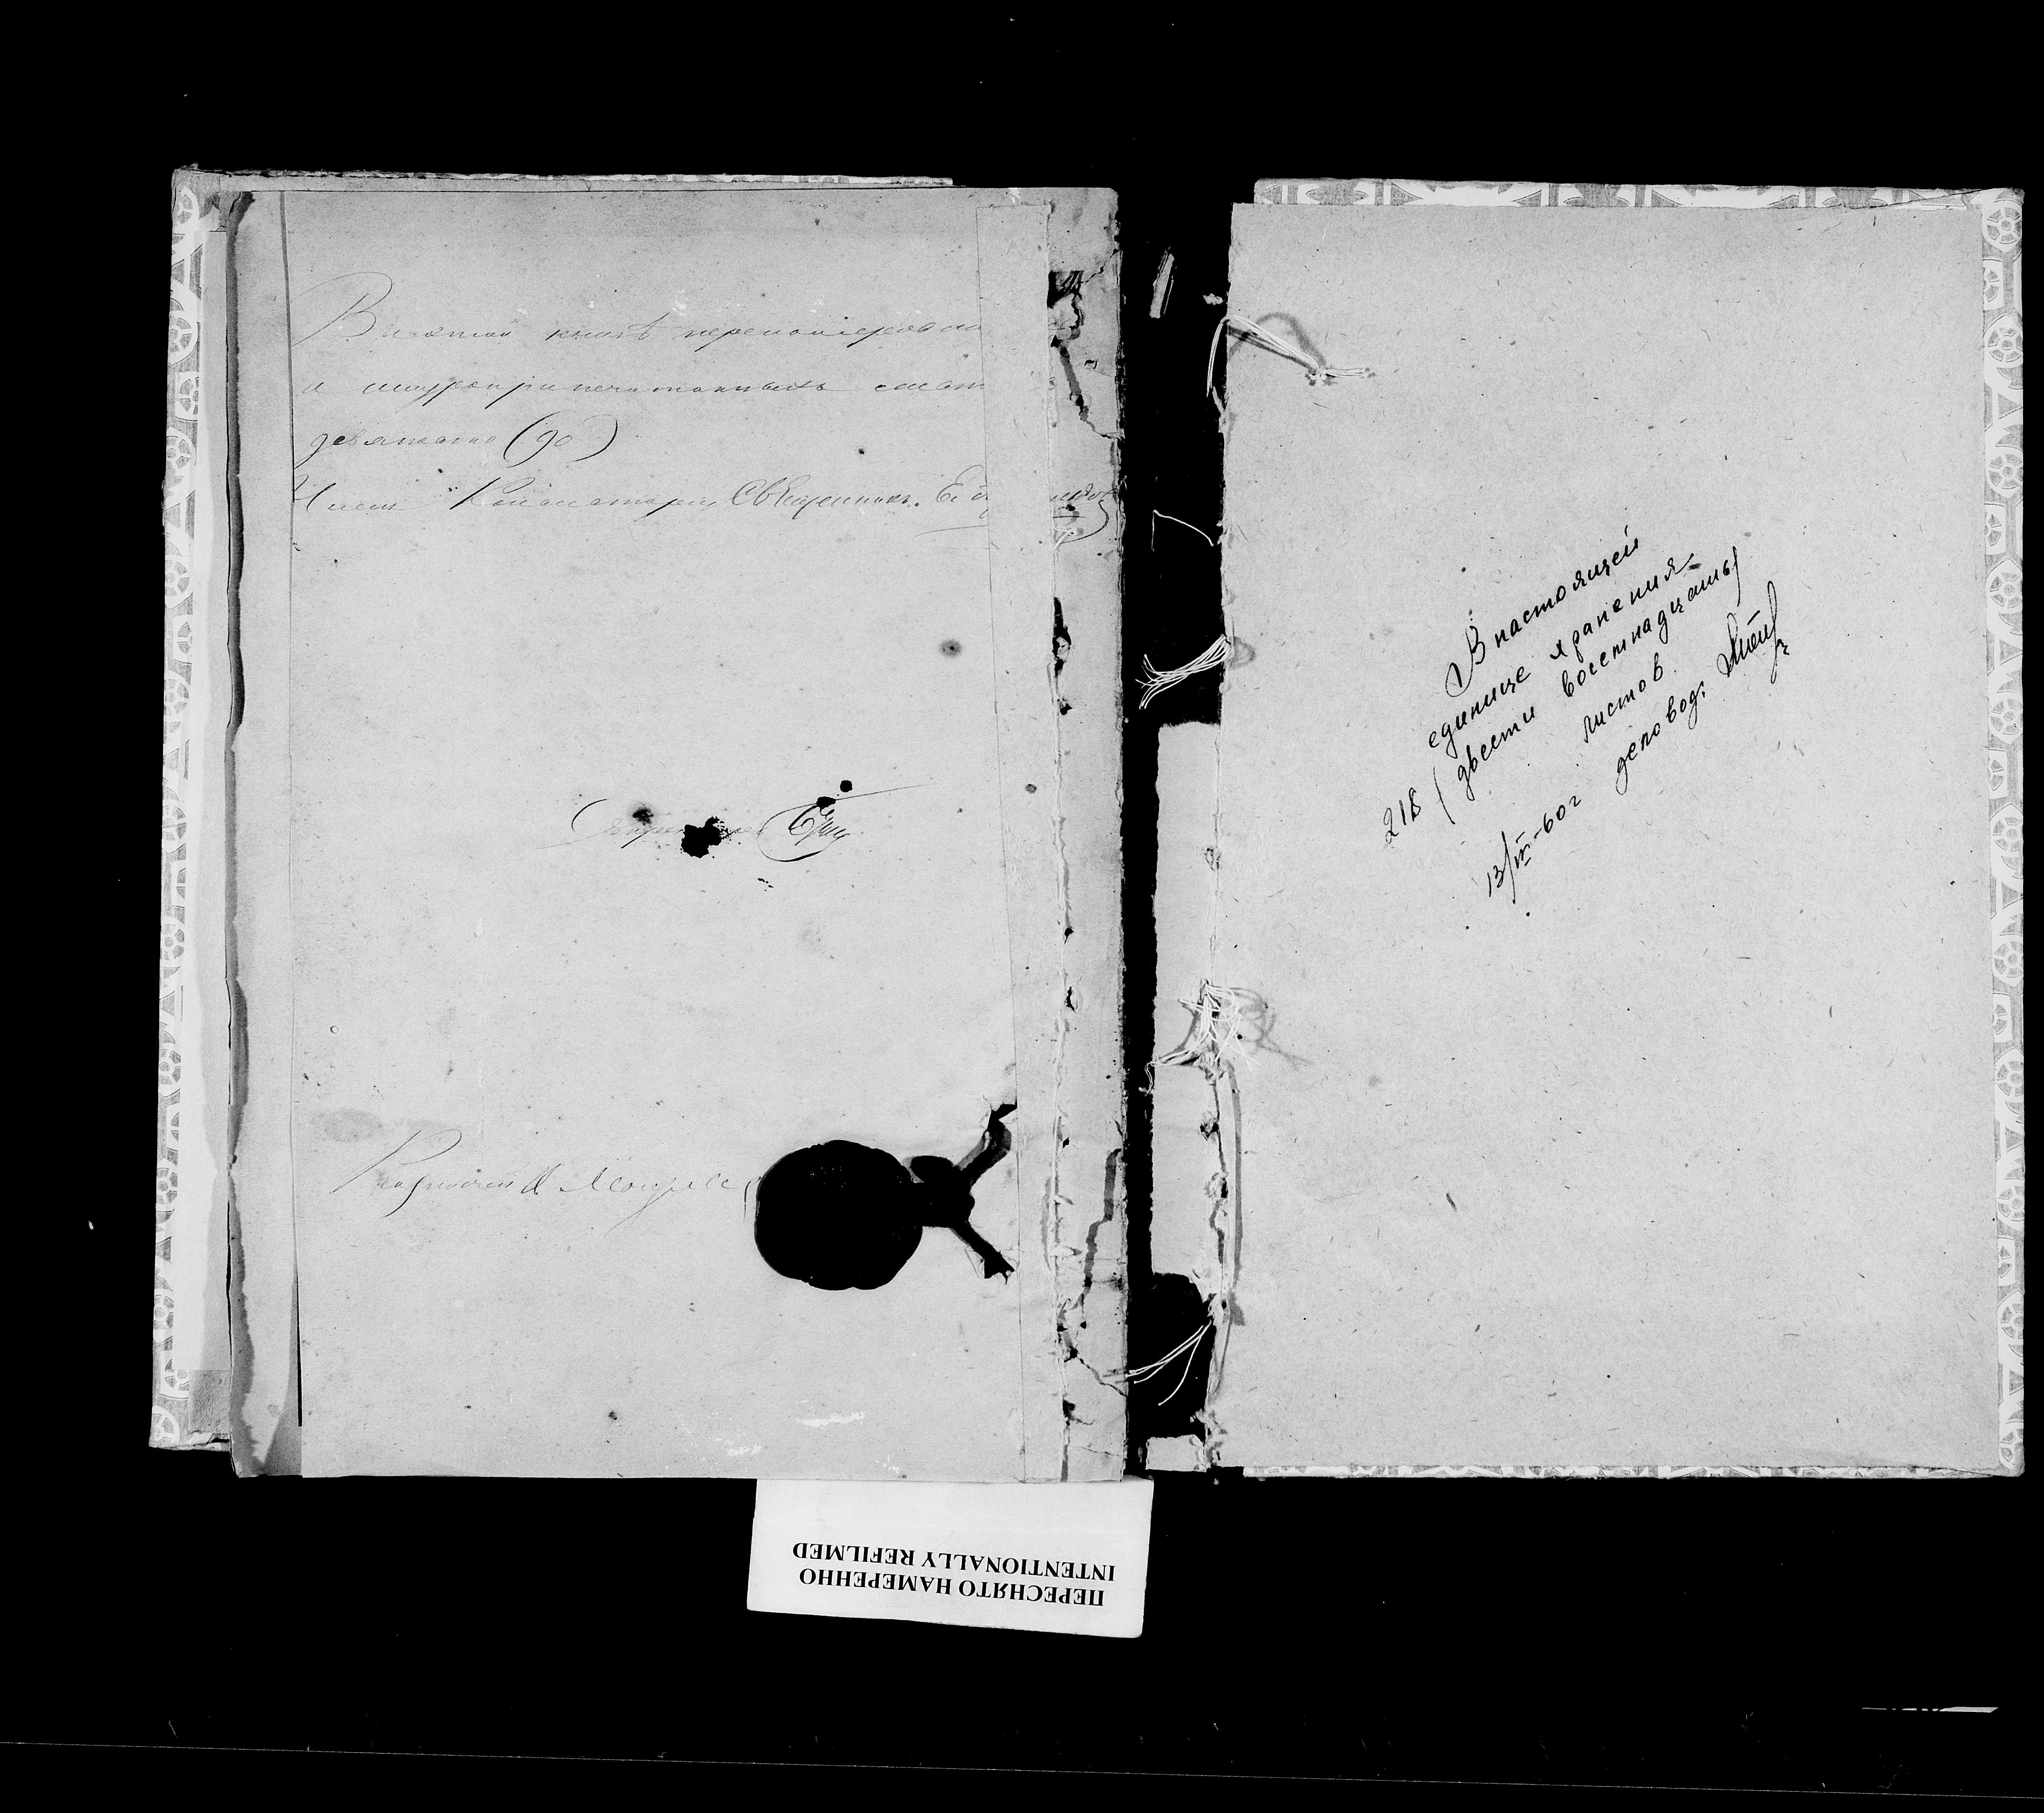 В этой книгѣ перенумерован
и шнуроприпечатанныхъ
девяносто (90)
Членъ Консисторіи Священникъ
Секретарь
В настоящей
единице хранения
218 (двести восемнадцать)
листов.
13/IV-60г делопвод:
ПЕРЕСНЯТО НАМЕРЕННО
INTENTIONALLY REFILMED